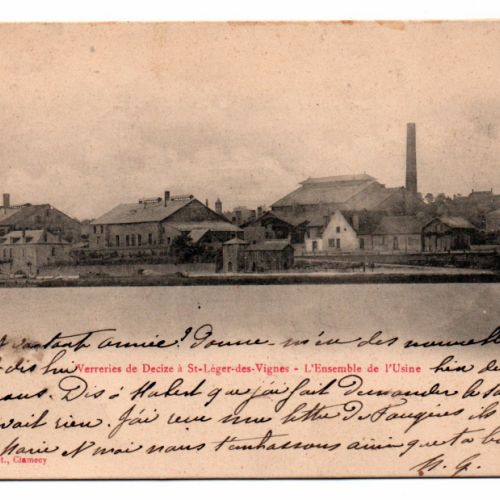 Verreries de Decize à St-Léger-des-Vignes - L'Ensemble de l'Usine
année? Donne-m'en des nouvelles
dis lui bien de
ous. Dis à Hubert que j'ai fait demander le
vait rien. J'ai reçu une lettre de Pougues
Marie et moi nous t'embrassons ainsi que ta
t., Clamecy
M. G.